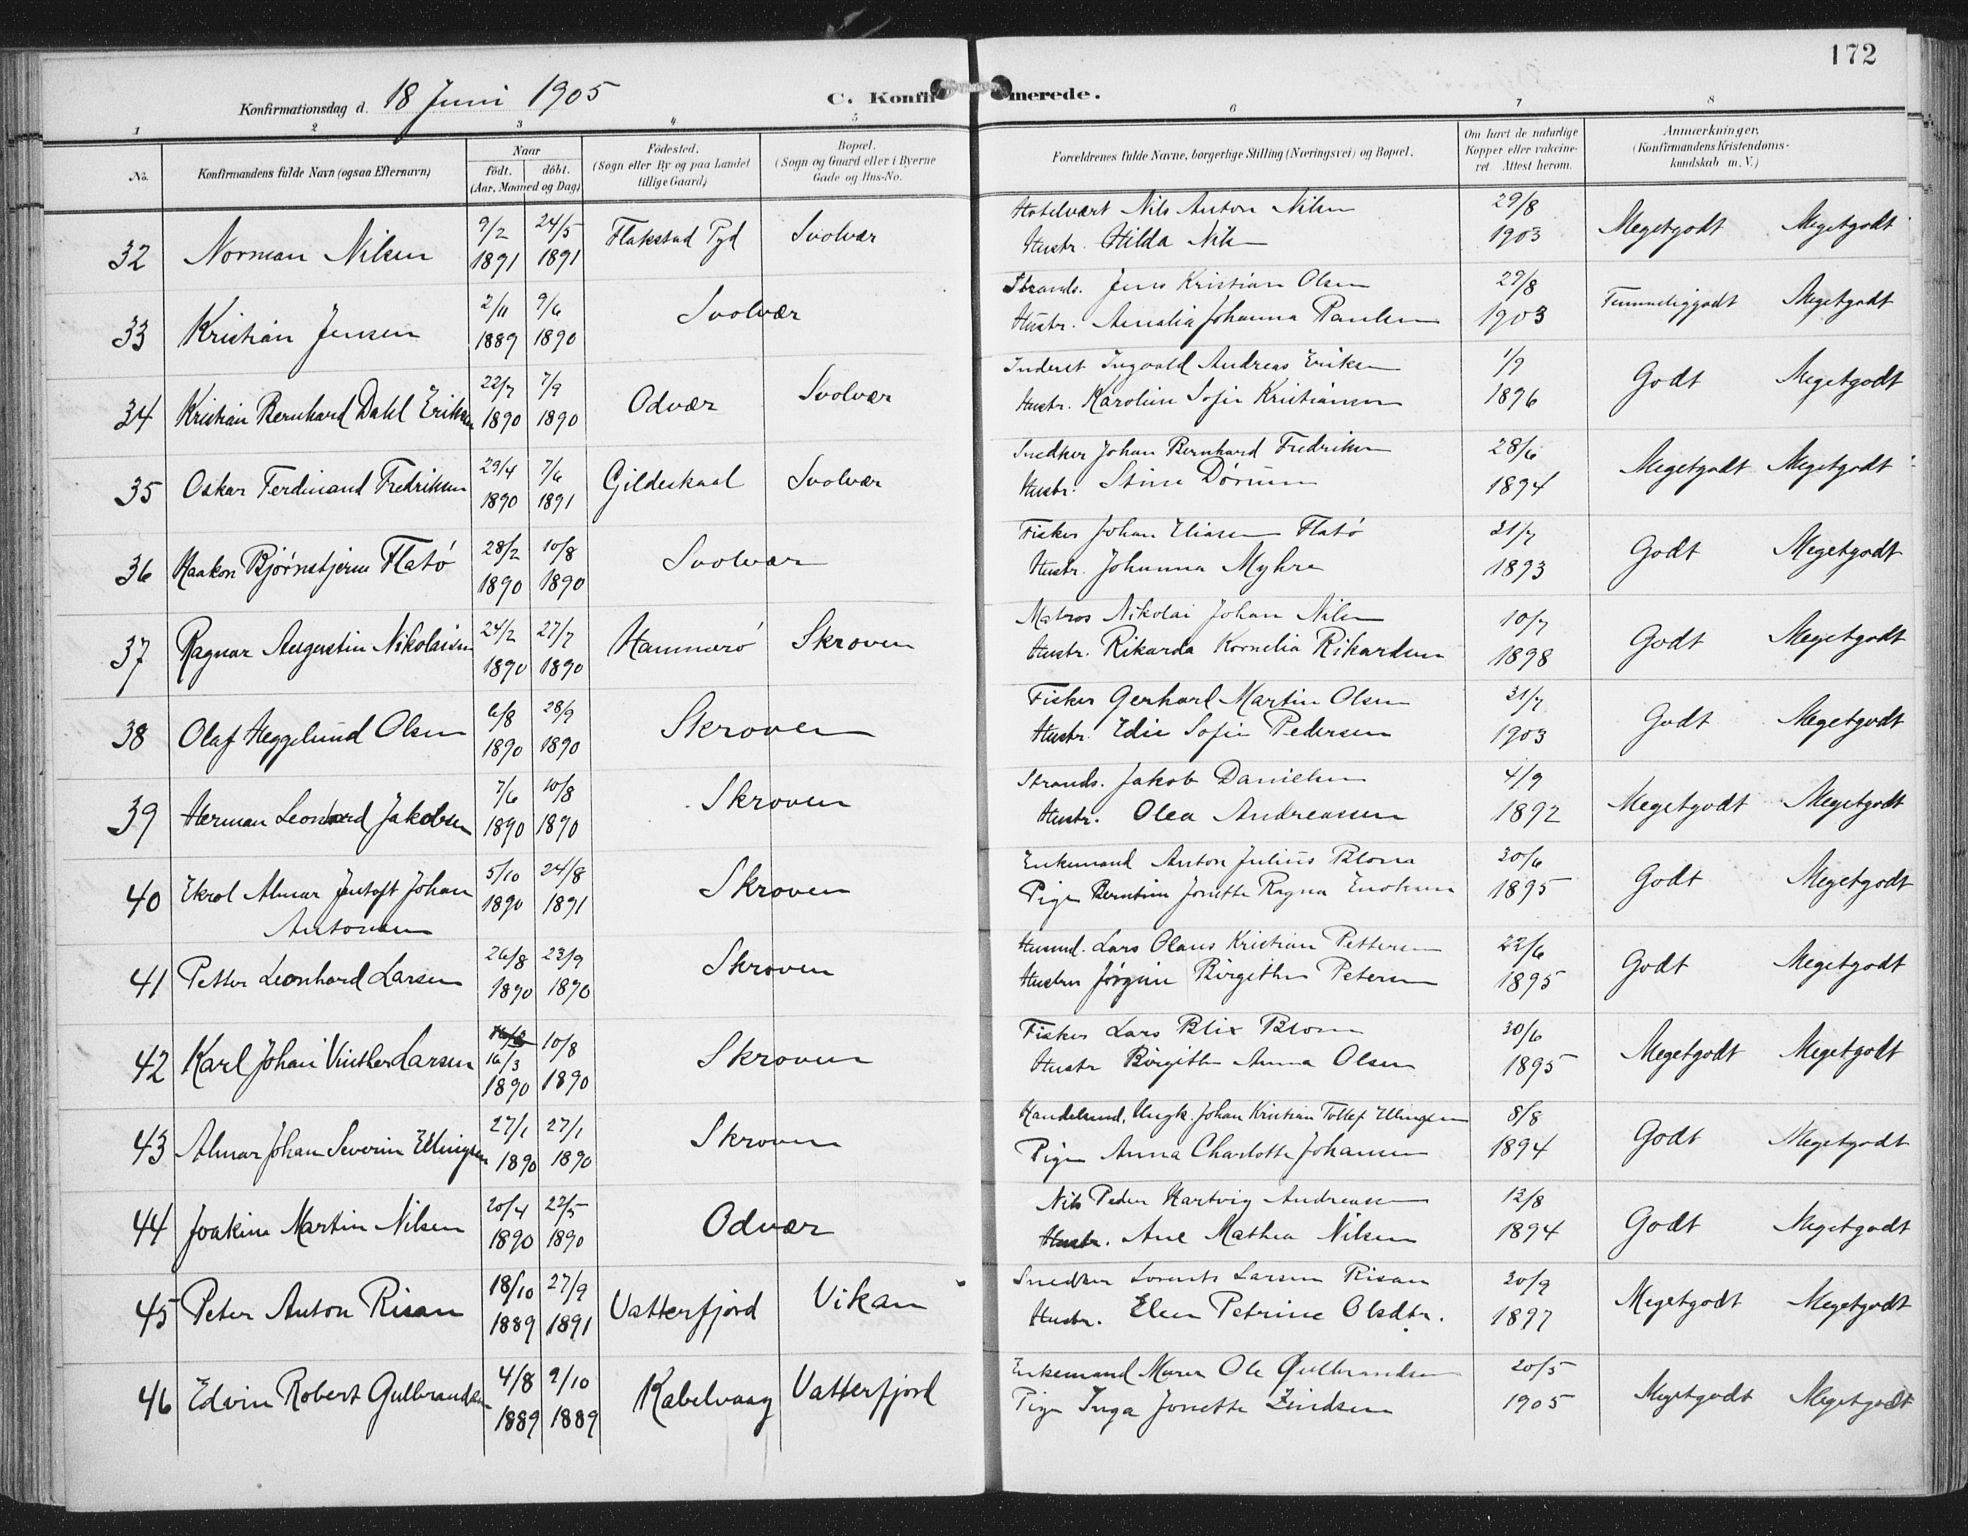 172
Konfirmationsdag d. 18 Juni 1905
C. Konfirmerede.
1 2 3 4 5 6 7 8
No. Konfirmandens fulde Navn (ogsaa Efternavn)
Naar
født. døbt.
(Aar, Maaned og Dag)
Fødested.
(Sogn eller By og paa Landet
tillige Gaard)
Bopæl.
(Sogn og Gaard eller i Byerne
Gade og Hus-No.
Forældrenes fulde Navne, borgerlige Stilling (Næringsvei) og Bopæl.
Om havt de naturlige
Kopper eller vaccine-
ret. Attest herom.
Anmærkninger.
(Konfirmandens Kristendoms-
kundskab m. V.)
9/2 24/5 Hotelvært Nils Anton Nilsen 29/8
32 Norman Nilsen 1891 1891 Flakstad Pgd Svolvær Hustr. Hilda Nilsen 1903 Megetgodt Megetgodt
2/11 9/6 Strands. Jens Kristian Olsen 29/8
33 Kristian Jensen 1889 1890 Svolvær Hustr. Amalia Johanna Paulsen 1903 Temmeliggodt Megetgodt
22/7 7/9 Inderst Ingvald Andreas Eriksen 1/9
34 Kristian Bernhard Dahl Eriksen 1890 1890 Odvær Svolvær Hustr. Karoline Sofie Kristiansen 1896 Godt Megetgodt
29/4 7/6 Snedker Johan Bernhard Fredriksen 28/6
35 Oskar Ferdinand Fredriksen 1890 1891 Gildeskaal Svolvær Hustr. Stine Dørum 1894 Megetgodt Megetgodt
28/2 10/8 Fisker Johan Eliasen Flatø 21/7
36 Haakon Bjørnstjerne Flatø 1890 1890 Svolvær Hustr. Johanna Myhre 1893 Godt Megetgodt
24/2 27/7 Matros Nikolai Johan Nilsen 10/7
37 Ragnar Augustin Nikolaisen 1890 1890 Hammerø Skroven Hustr. Rikarda Kornelia Rikardsen 1898 Godt Megetgodt
6/8 28/9 Fisker Gerhard Martin Olsen 31/7
38 Olaf Heggelund Olsen 1890 1890 Skroven Hustr. Edie Sofie Pedersen 1903 Godt Megetgodt
7/6 10/8 Strands. Jakob Danielsen 4/9
39 Herman Leonhard Jakobsen 1890 1890 Skroven Hustr. Olea Andreassen 1892 Megetgodt Megetgodt
5/10 24/8 Enkemand Anton Julius Blom 30/6
40 Ekrol Almar Jentoft Johan 1890 1891 Skroven Pige Berntine Jonette Ragna Enoksen 1895 Godt Megetgodt
Antonsen
26/8 23/9 Husmd. Lars Olaus Kristian Pettersen 22/6
41 Petter Leonhard Larsen 1890 1890 Skroven Hustru Jørgine Birgithe Petersen 1895 Godt Megetgodt
10/8 Fisker Lars Blix Blom 30/6
42 Karl Johan Vinther Larsen 16/3 1890 1890 Skroven Hustr Birgithe Anna Olsen 1895 Megetgodt Megetgodt
27/1 27/1 Handelsmd. Ungk. Johan Kristian Tollef Ellingsen 8/8
43 Almar Johan Severin Ellingsen 1890 1890 Skroven Pige Anna Charlotte Johansen 1894 Godt Megetgodt
20/4 22/5 Nils Peder Hartvig Andreassen 12/8
44 Joakim Martin Nilsen 1890 1890 Odvær Hustr. Ane Mathea Nilsen 1894 Godt Megetgodt
18/10 27/9 Snedker Lorents Larsen Risan 20/9
45 Peter Anton Risan 1889 1891 Vatterfjord Vikan Hustr. Elen Petrine Olsdtr. 1897 Megetgodt Megetgodt
4/8 9/10 Enkemand Murer Ole Gulbrandsen 20/5
46 Edvin Robert Gulbrandsen 1889 1889 Kabelvaag Vatterfjord Pige Inga Jonette Lindsen 1905 Megetgodt Megetgodt